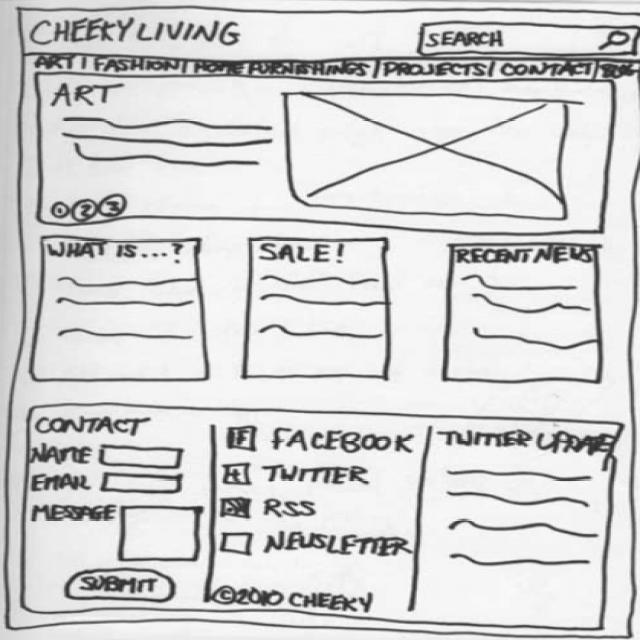 CHEEKY LIVING
SEARCH
ART | FASHION | HOME FURNISHINGS / PROJECTS / CONTACT /
ART
1 2 3
WHAT IS...?
SALE!
RECENT NEWS
CONTACT
NAME
EMAIL
MESSAGE
SUBMIT
F FACEBOOK
t TWITTER
RSS
NEWSLETTER
©2010 CHEEKY
TWITTER UPDATE